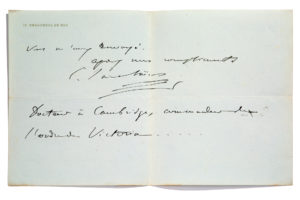 Vous m'avez envoyé
ayez mes compliments
C. Saint-Saëns
Docteur à Cambridge, commandeur de
l'ordre de Victoria . . . . .